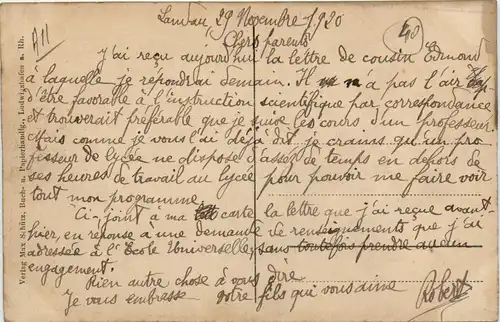 A11
Landau, 29 Novembre 1920
40
Chers parents
J'ai reçu aujourd'hui la lettre de cousin Edmond
à laquelle je répondrai demain. Il n'a pas l'air
d'être favorable à l'instruction scientifique par correspondance
et trouverait préférable que je suive les cours d'un professeur.
Mais comme je vous l'ai déjà dit je crains qu'un pro-
fesseur de lycée ne dispose d'assez de temps en dehors de
ses heures de travail au lycée pour pouvoir me faire voir
tout mon programme.
Ci-joint à ma carte la lettre que j'ai reçue avant-
hier, en réponse à une demande de renseignements que j'ai
adressée à l'Ecole Universelle, sans toutefois prendre aucun
engagement.
Rien autre chose à vous dire
Je vous embrasse votre fils qui vous aime
Robert
Verlag Max Schürz, Buch- u. Papierhandlg., Ludwigshafen a. Rh.